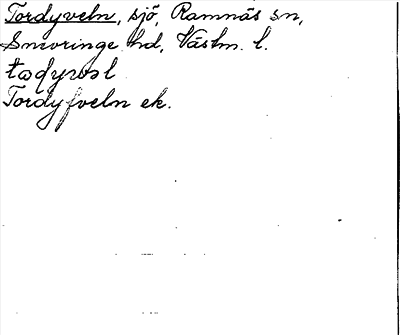 Tordyveln, sjö, Ramnäs sn,
Snevringe hd, Västm. l.
Tordyfveln ek.